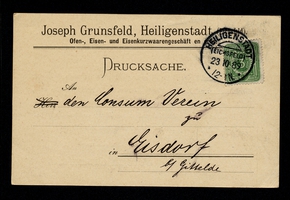 Joseph Grunsfeld, Heiligenstadt
Ofen-, Eisen- und Eisenkurzwaarengeschäft en
HEILIGENSTADT
23 10
12-1N
DRUCKSACHE.
An
den Consum Verein
zu
in Eisdorf
b/ Gittelde